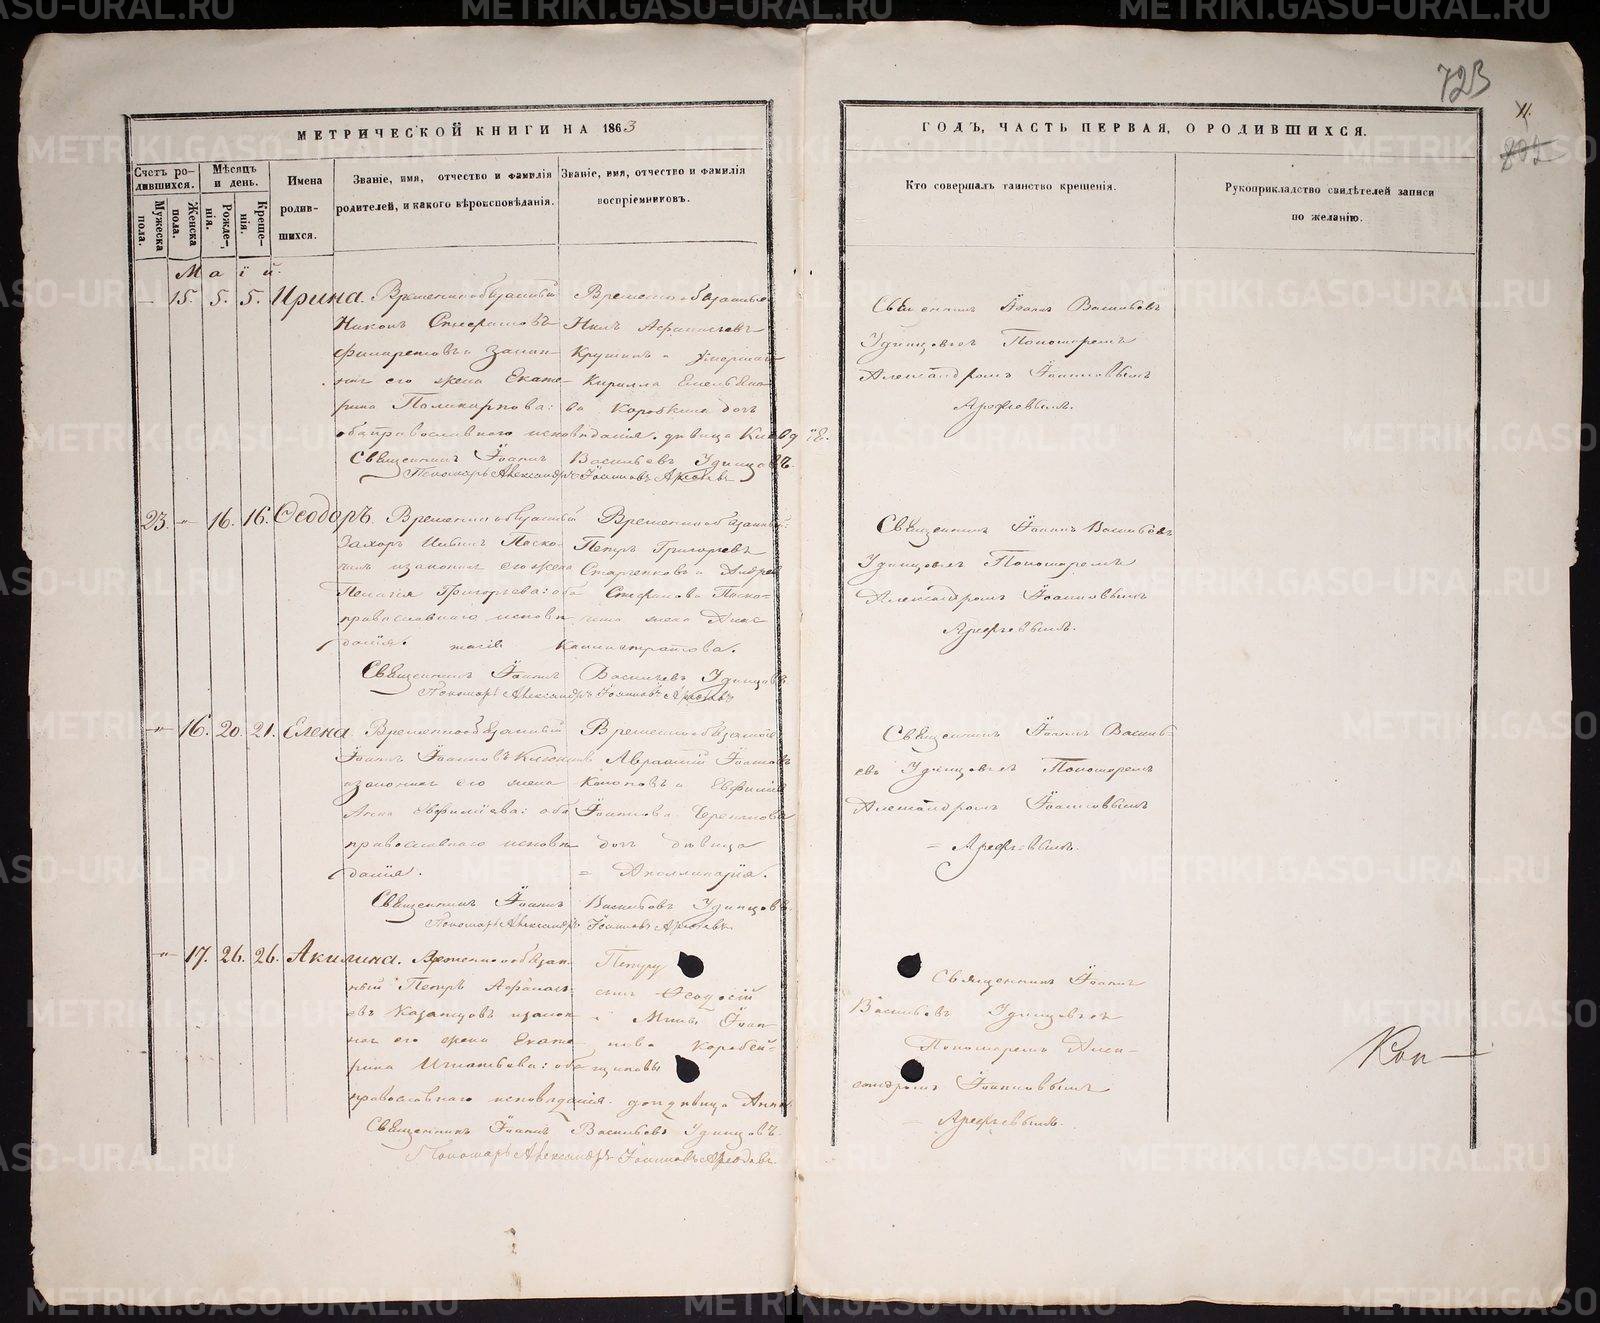 723
11.
805
МЕТРИЧЕСКОЙ КНИГИ НА 1863
ГОДЪ, ЧАСТЬ ПЕРВАЯ, О РОДИВШИХСЯ.
Счетъ родившихся.
Мужеска пола.
Женска пола.
Мѣсяцъ и день.
Рожденія.
Крещенія.
Имена родившихся.
Званіе, имя, отчество и фамилія родителей, и какого вѣроисповѣданія.
Званіе, имя, отчество и фамилія воспріемниковъ.
Кто совершалъ таинство крещенія.
Рукоприкладство свидѣтелей записи по желанію.
Маій.
15. 5. 5. Ирина.
Временнообязанный
Никонъ
Филаретовъ и закон-
ная его жена Екате-
рина Поликарпова:
оба православнаго исповѣданія.
Временнообязанные
Нилъ Афанасьевъ
Крушинъ и умершаго
Кирилла Емельяно-
ва Коробкина дочь
дѣвица
Священникъ Іоаннъ Васильевъ Удинцовъ.
Пономарь Александръ Іоанновъ Арефьевъ
Священникъ Іоаннъ Васильевъ
Удинцовъ съ Пономаремъ
Александромъ Іоанновымъ
Арефьевымъ.
23. -"- 16. 16. Ѳеодоръ.
Временнообязанный
Захаръ
законная его жена
Пелагія Григорьева: оба
православнаго исповѣ-
данія.
Временнообязанный:
Петръ Григорьевъ
Старченковъ и Андрея
Стефанова
жена Анас-
тасія Каллистратова.
Священникъ Іоаннъ Васильевъ Удинцовъ
Пономарь Александръ Іоанновъ Арефьевъ
Священникъ Іоаннъ Васильевъ
Удинцовъ съ Пономаремъ
Александромъ Іоанновымъ
Арефьевымъ.
-"- 16. 20. 21. Елена
Временнообязанный
Іоаннъ Іоанновъ
законная его жена
Анна Евфиміева: оба
православнаго исповѣ-
данія.
Временнообязанные
Авраамій Іоанновъ
Кононовъ и Евфимія
Іоаннова Черепанова
дочь дѣвица
= Аполлинарія.
Священникъ Іоаннъ Васильевъ Удинцовъ.
Пономарь Александръ Іоанновъ Арефьевъ.
Священникъ Іоаннъ Василь-
евъ Удинцовъ съ Пономаремъ
Александромъ Іоанновымъ
= Арефьевымъ.
-"- 17. 26. 26. Акилина.
Временнообязан-
ный Петръ Афанась-
евъ Казанцовъ закон-
ная его жена Екате-
рина Игнатьева: оба
православнаго исповѣданія.
Петру
сынъ Ѳеодосій
и Мины Іоан-
нова Коробей-
щиковы
дочь дѣвица Анна
Священникъ Іоаннъ Васильевъ Удинцовъ.
Пономарь Александръ Іоанновъ Арефьевъ.
Священникъ Іоаннъ
Васильевъ Удинцовъ съ
Пономаремъ Алек-
сандромъ Іоанновымъ
= Арефьевымъ.
METRIKI.GASO-URAL.RU